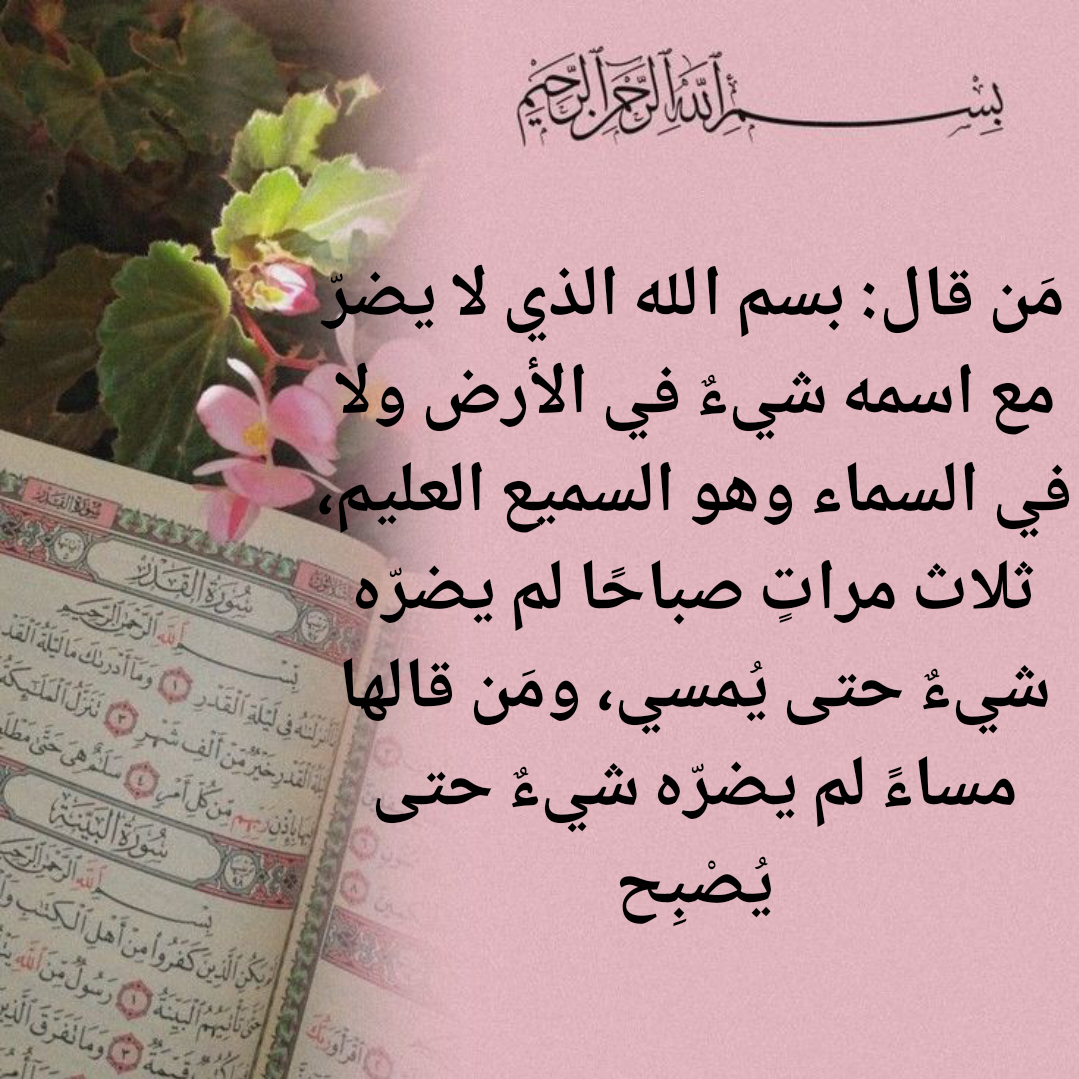 بِسْمِ اللَّهِ الرَّحْمَنِ الرَّحِيمِ
مَن قال: بسم الله الذي لا يضرّ
مع اسمه شيءٌ في الأرض ولا
في السماء وهو السميع العليم،
ثلاث مراتٍ صباحًا لم يضرّه
شيءٌ حتى يُمسي، ومَن قالها
مساءً لم يضرّه شيءٌ حتى
يُصْبِح
سُورَةُ القَدْرِ
سُورَةُ القَدْرِ
بِسْمِ اللَّهِ الرَّحْمَنِ الرَّحِيمِ
فِي لَيْلَةِ الْقَدْرِ ١ وَمَا أَدْرَىٰكَ مَا لَيْلَةُ الْقَدْ
الْقَدْرِ خَيْرٌ مِّنْ أَلْفِ شَهْرٍ ٣ تَنَزَّلُ الْمَلَٰٓئِكَةُ
بِإِذْنِ رَبِّهِم مِّن كُلِّ أَمْرٍ ٤ سَلَٰمٌ هِيَ حَتَّىٰ مَطْلَعِ
سُورَةُ البَيِّنَةِ
بِسْمِ اللَّهِ الرَّحْمَنِ الرَّحِيمِ
يَكُنِ الَّذِينَ كَفَرُوا مِنْ أَهْلِ الْكِتَٰبِ
حَتَّىٰ تَأْتِيَهُمُ الْبَيِّنَةُ ١ رَسُولٌ مِّنَ اللَّهِ
قَيِّمَةٌ ٣ وَمَا تَفَرَّقَ الَّذِينَ